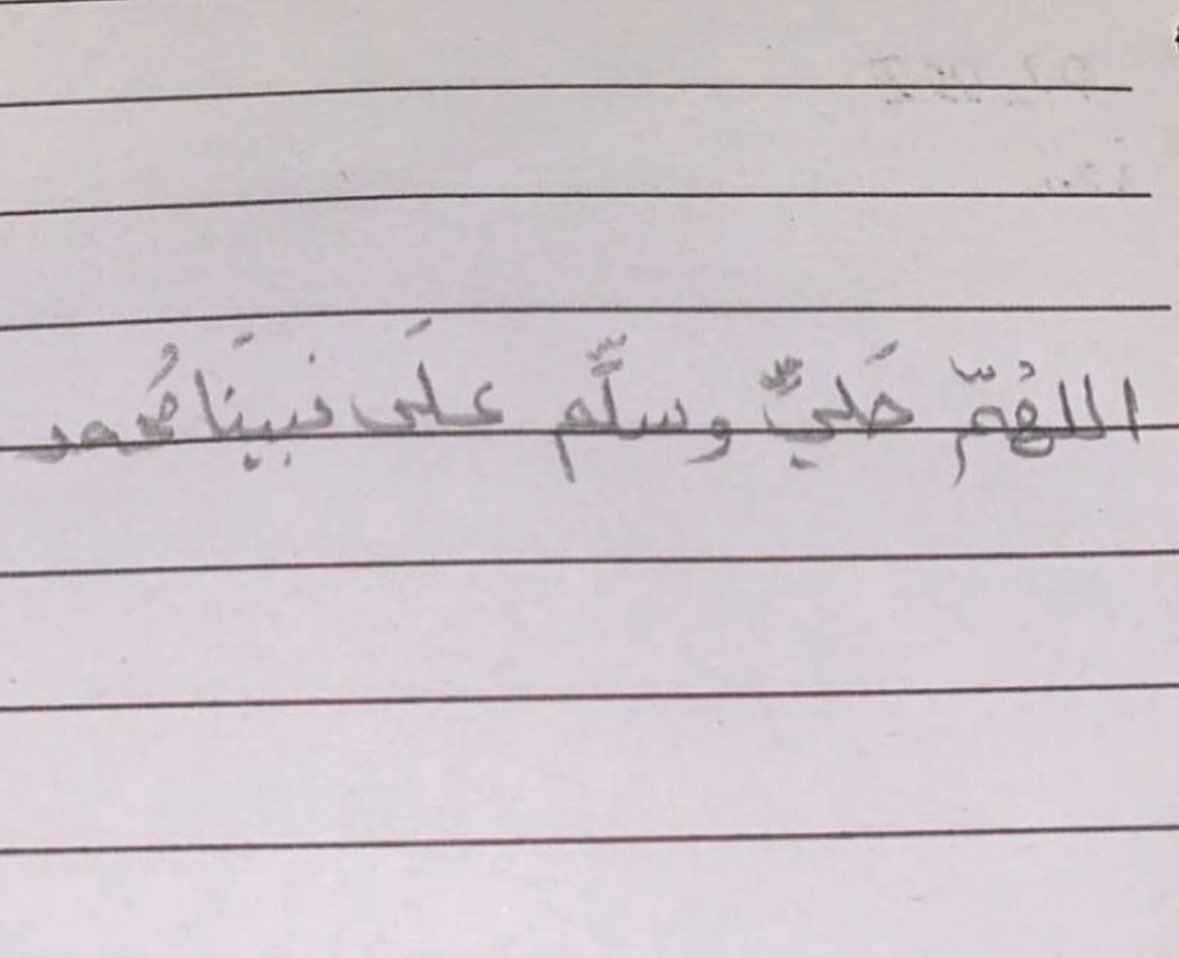 اللهُمّ صَليِّ وسلَّم علَى نبينَا مُحمد